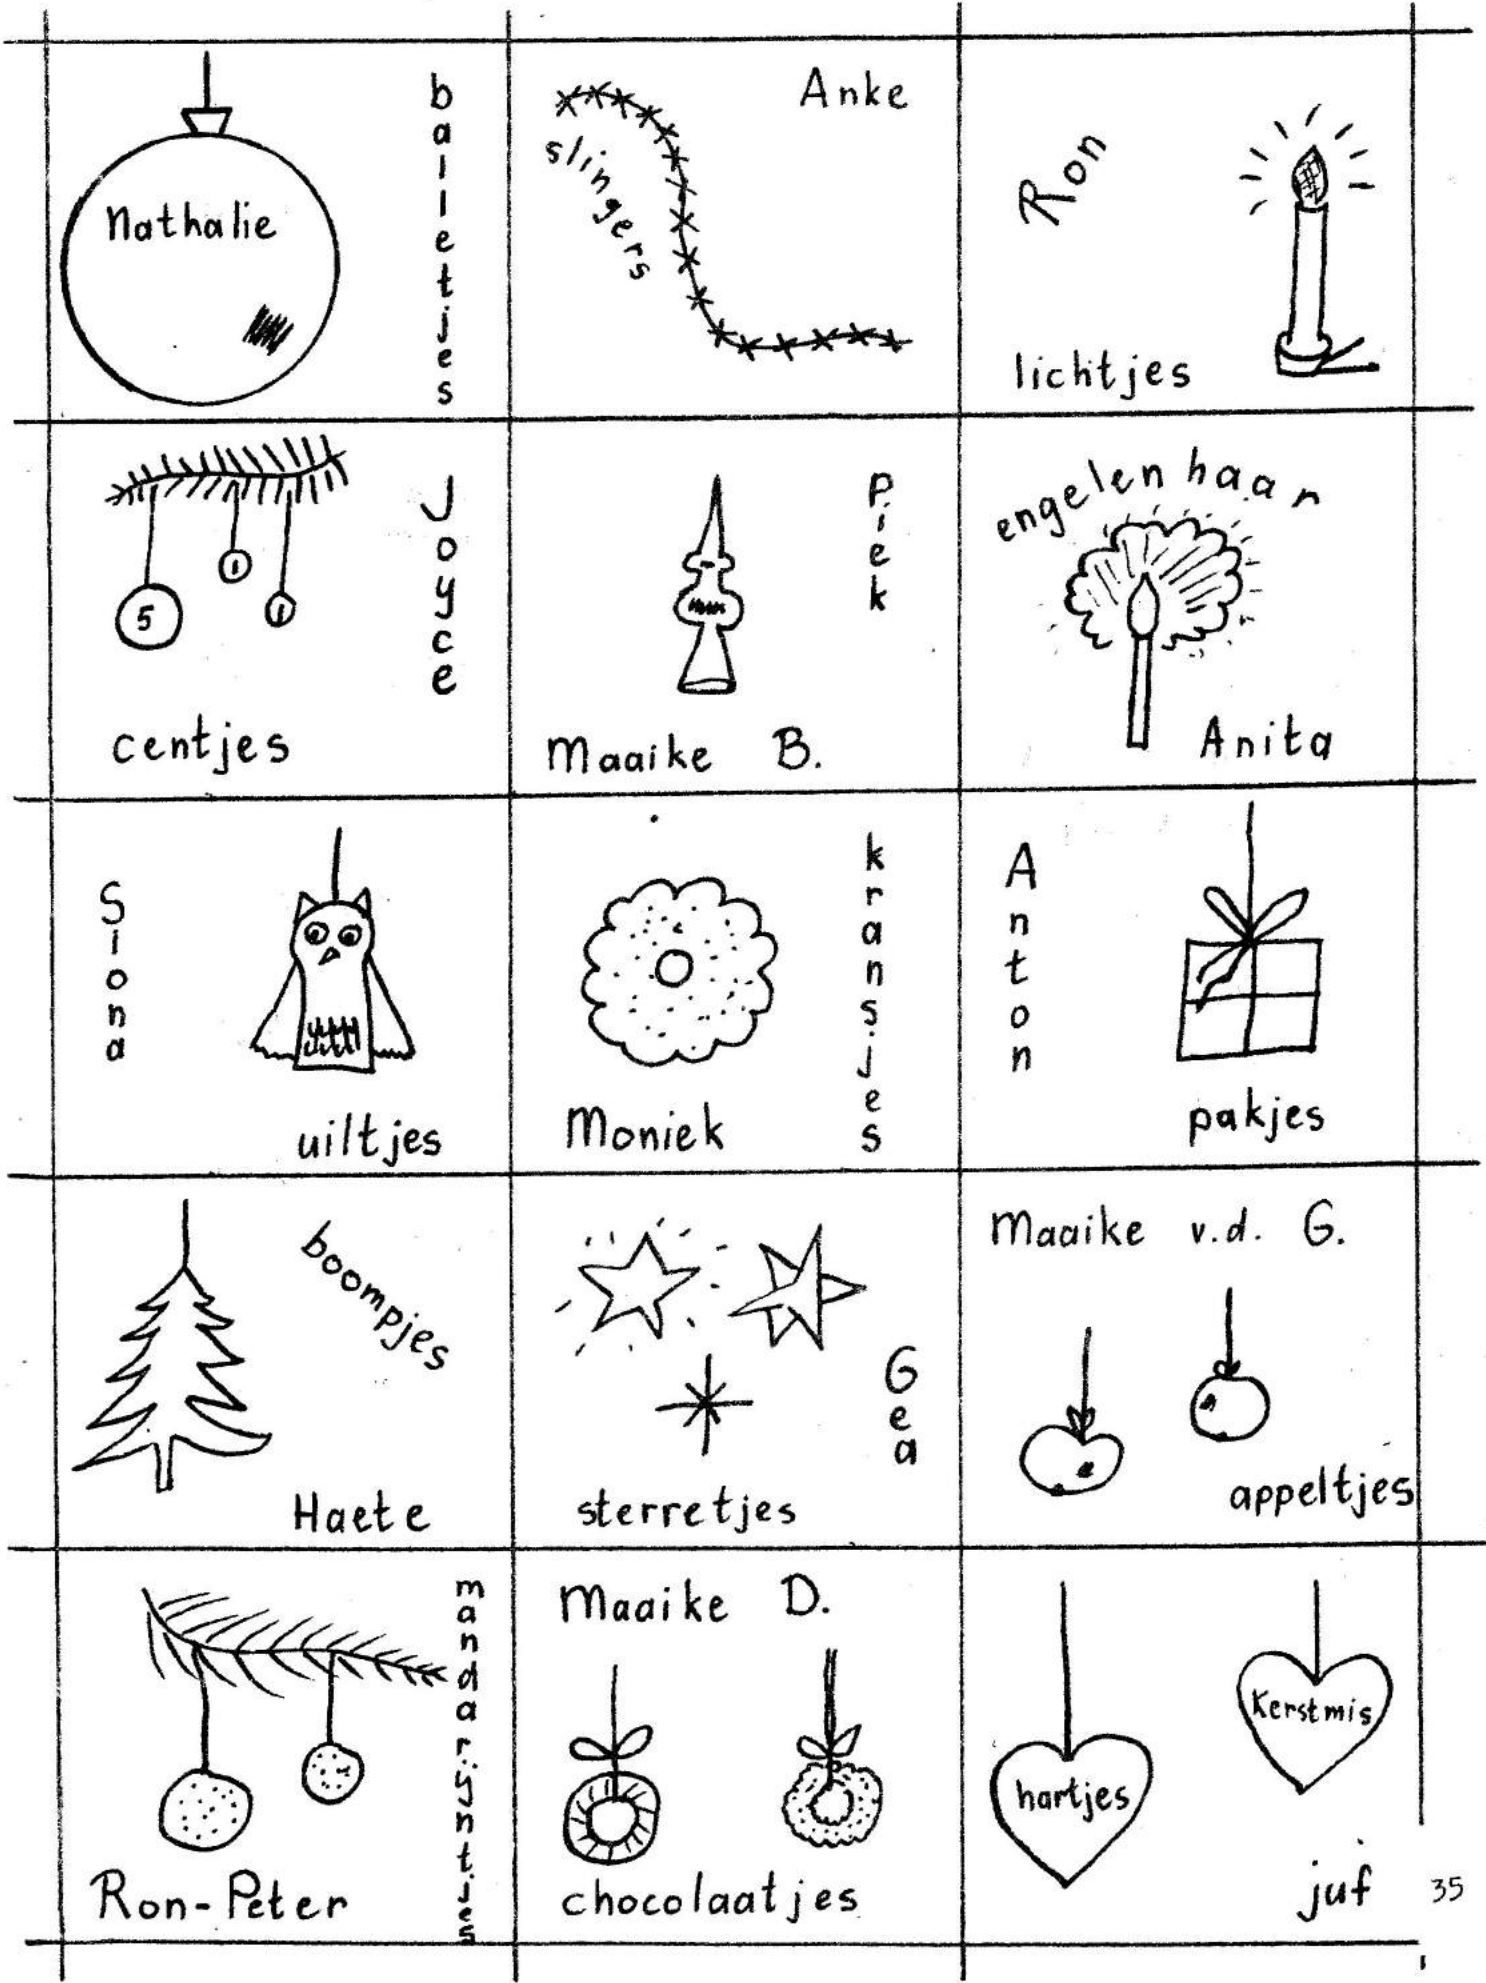 Nathalie
balletjes
Anke
slingers
Ron
lichtjes
5
1
1
Joyce
centjes
piek
Maaike B.
engelenhaar
Anita
Siona
uiltjes
kransjes
Moniek
Anton
pakjes
boompjes
Haete
Gea
sterretjes
Maaike v.d. G.
appeltjes
mandarijntjes
Ron-Peter
Maaike D.
chocolaatjes
Kerstmis
hartjes
juf
35